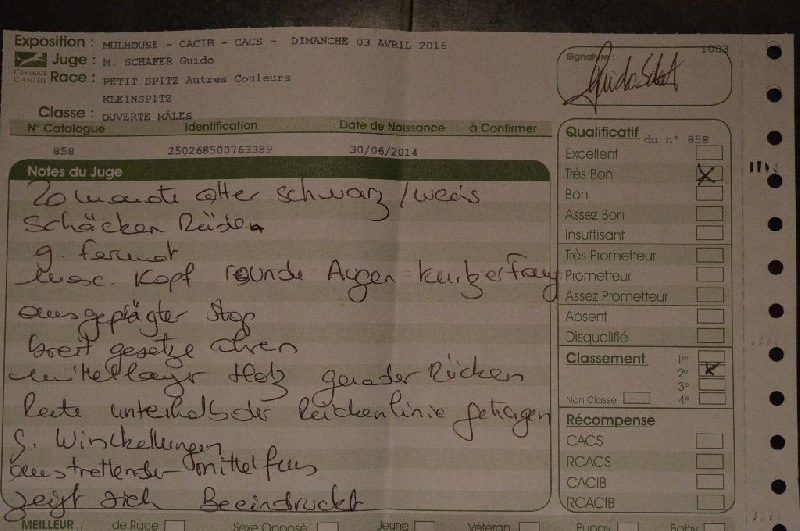 Exposition : MULHOUSE - CACIB - CACS - DIMANCHE 03 AVRIL 2016
Juge : M. SCHAFER Guido
Race : PETIT SPITZ Autres Couleurs
KLEINSPITZ
Classe : OUVERTE MÂLES
Signature :
N° Catalogue Identification Date de Naissance à Confirmer
858 250268500763389 30/06/2014
Notes du Juge
20 monate alter schwarz/weis
Schäcken Rüden
g. formt
masc. Kopf rounde Augen kurzer Fang
ausgeprägter Stop
breit gesetze ohren
mittellanger Halz gerader Rücken
Rute unterhalb der Rückenlinie getragen
g. Winckellungen
mittelfus
zeigt sich Beeindruckt
Qualificatif du n° 858
Excellent
Très Bon X
Bon
Assez Bon
Insuffisant
Très Prometteur
Prometteur
Assez Prometteur
Absent
Disqualifié
Classement 1er
2e X
3e
Non Classé 4e
Récompense
CACS
RCACS
CACIB
RCACIB
MEILLEUR : de Race Sexe Opposé Jeune Vétéran Puppy Baby